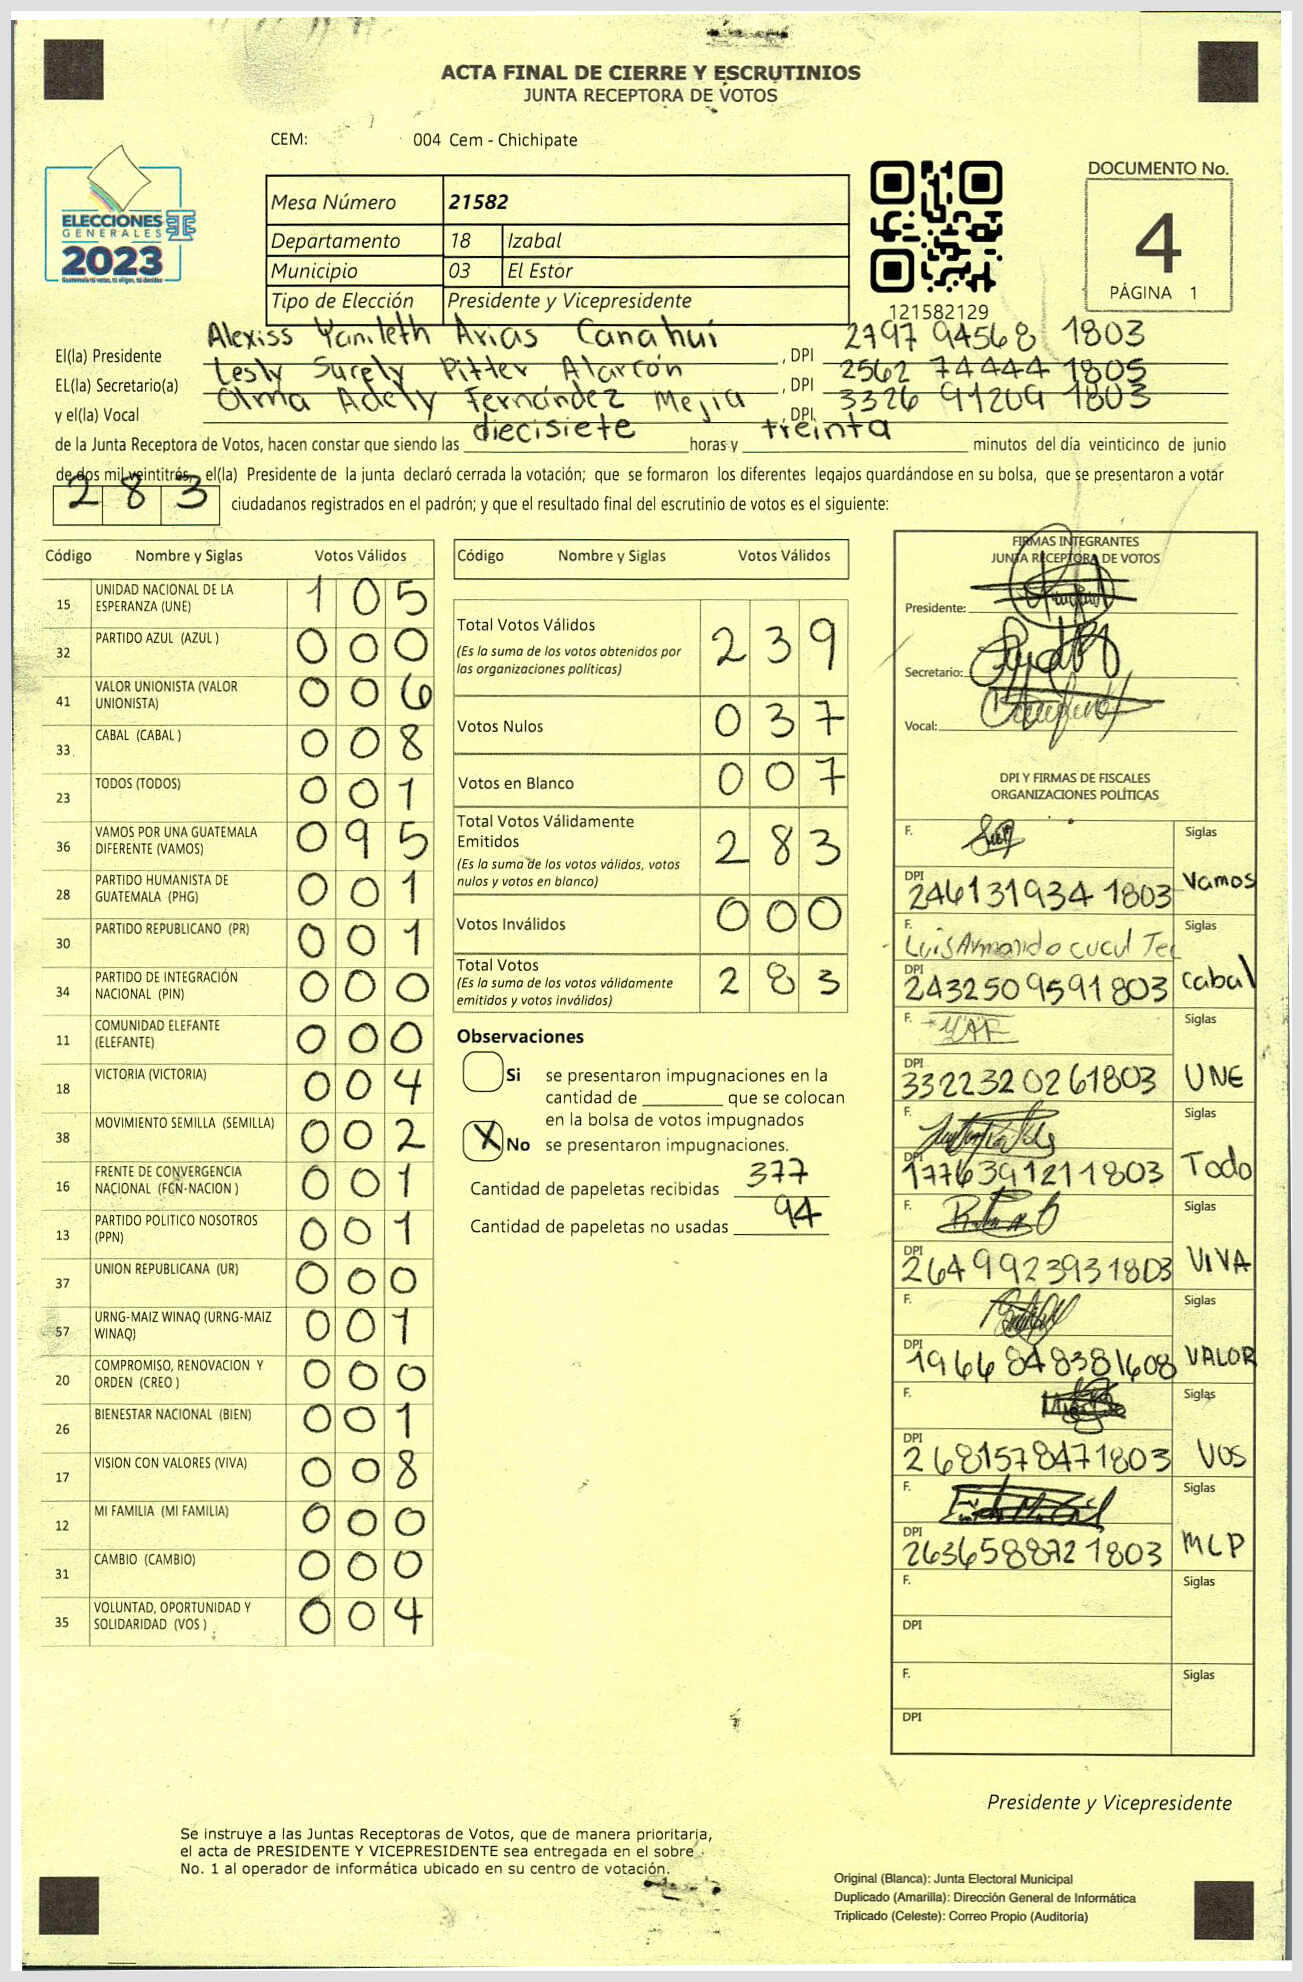 ACTA FINAL DE CIERRE Y ESCRUTINIOS
JUNTA RECEPTORA DE VOTOS
CEM: 004 Cem - Chichipate
ELECCIONES
GENERALES
2023
Mesa Número 21582
Departamento 18 Izabal
Municipio 03 El Estor
Tipo de Elección Presidente y Vicepresidente
121582129
DOCUMENTO No.
4
PÁGINA 1
El(la) Presidente Alexiss Yamileth Arias Canahui , DPI 2797 94568 1803
EL(la) Secretario(a) Lesly Surely Pitter Alarcón , DPI 2562 74444 1805
y el(la) Vocal Olma Adely Fernández Mejia , DPI 3326 91209 1803
de la Junta Receptora de Votos, hacen constar que siendo las diecisiete horas y treinta minutos del día veinticinco de junio
de dos mil veintitrés, el(la) Presidente de la junta declaró cerrada la votación; que se formaron los diferentes legajos guardándose en su bolsa, que se presentaron a votar
283 ciudadanos registrados en el padrón; y que el resultado final del escrutinio de votos es el siguiente:
Código Nombre y Siglas Votos Válidos
15 UNIDAD NACIONAL DE LA ESPERANZA (UNE) 105
32 PARTIDO AZUL (AZUL ) 000
41 VALOR UNIONISTA (VALOR UNIONISTA) 006
33 CABAL (CABAL ) 008
23 TODOS (TODOS) 001
36 VAMOS POR UNA GUATEMALA DIFERENTE (VAMOS) 095
28 PARTIDO HUMANISTA DE GUATEMALA (PHG) 001
30 PARTIDO REPUBLICANO (PR) 001
34 PARTIDO DE INTEGRACIÓN NACIONAL (PIN) 000
11 COMUNIDAD ELEFANTE (ELEFANTE) 000
18 VICTORIA (VICTORIA) 004
38 MOVIMIENTO SEMILLA (SEMILLA) 002
16 FRENTE DE CONVERGENCIA NACIONAL (FCN-NACION ) 001
13 PARTIDO POLITICO NOSOTROS (PPN) 001
37 UNION REPUBLICANA (UR) 000
57 URNG-MAIZ WINAQ (URNG-MAIZ WINAQ) 001
20 COMPROMISO, RENOVACION Y ORDEN (CREO ) 000
26 BIENESTAR NACIONAL (BIEN) 001
17 VISION CON VALORES (VIVA) 008
12 MI FAMILIA (MI FAMILIA) 000
31 CAMBIO (CAMBIO) 000
35 VOLUNTAD, OPORTUNIDAD Y SOLIDARIDAD (VOS ) 004
Código Nombre y Siglas Votos Válidos
Total Votos Válidos 239
(Es la suma de los votos obtenidos por
las organizaciones políticas)
Votos Nulos 037
Votos en Blanco 007
Total Votos Válidamente
Emitidos 283
(Es la suma de los votos válidos, votos
nulos y votos en blanco)
Votos Inválidos 000
Total Votos 283
(Es la suma de los votos válidamente
emitidos y votos inválidos)
Observaciones
Si se presentaron impugnaciones en la
cantidad de ________ que se colocan
en la bolsa de votos impugnados
X No se presentaron impugnaciones.
Cantidad de papeletas recibidas 377
Cantidad de papeletas no usadas 94
FIRMAS INTEGRANTES
JUNTA RECEPTORA DE VOTOS
Presidente:
Secretario:
Vocal:
DPI Y FIRMAS DE FISCALES
ORGANIZACIONES POLÍTICAS
F. Siglas
DPI 246131934 1803 Vamos
F. Luis Armando cucul Tec Siglas
DPI 2432509591803 Cabal
F. Siglas
DPI 3322320261803 UNE
F. Siglas
DPI 1776391211803 Todo
F. Siglas
DPI 2649923931803 VIVA
F. Siglas
DPI 1966848381608 VALOR
F. Siglas
DPI 2681578471803 VOS
F. Siglas
DPI 2636588721803 MLP
F. Siglas
DPI
F. Siglas
DPI
Presidente y Vicepresidente
Se instruye a las Juntas Receptoras de Votos, que de manera prioritaria,
el acta de PRESIDENTE Y VICEPRESIDENTE sea entregada en el sobre
No. 1 al operador de informática ubicado en su centro de votación.
Original (Blanca): Junta Electoral Municipal
Duplicado (Amarilla): Dirección General de Informática
Triplicado (Celeste): Correo Propio (Auditoría)